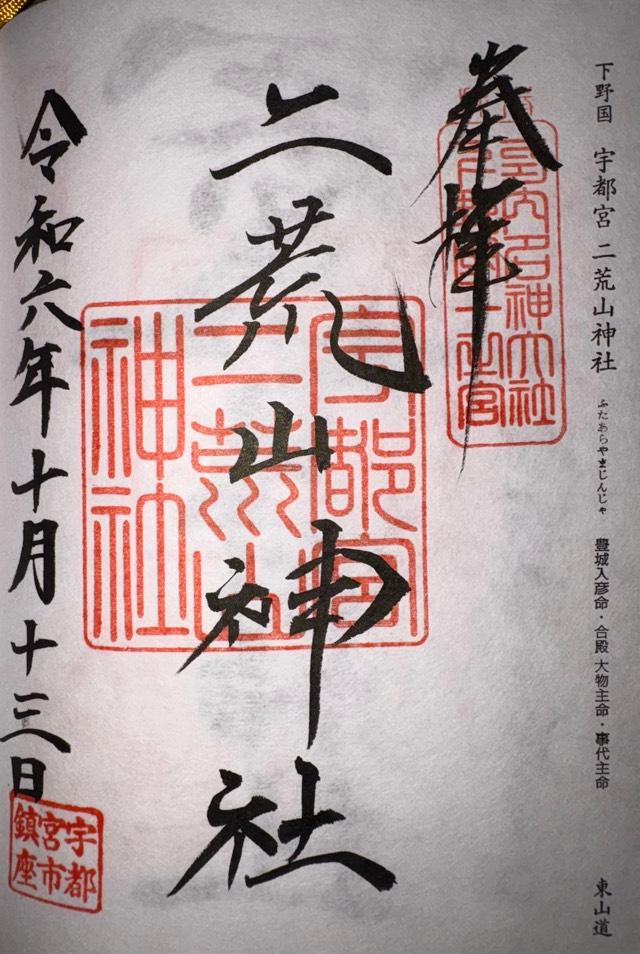 下野国 宇都宮 二荒山神社 ふたあらやまじんじゃ 豊城入彦命・合殿 大物主命・事代主命 東山道
奉拝
内名神大社
一之宮
二荒山神社
宇都宮
二荒山
神社
令和六年十月十三日
宇都
宮市
鎮座